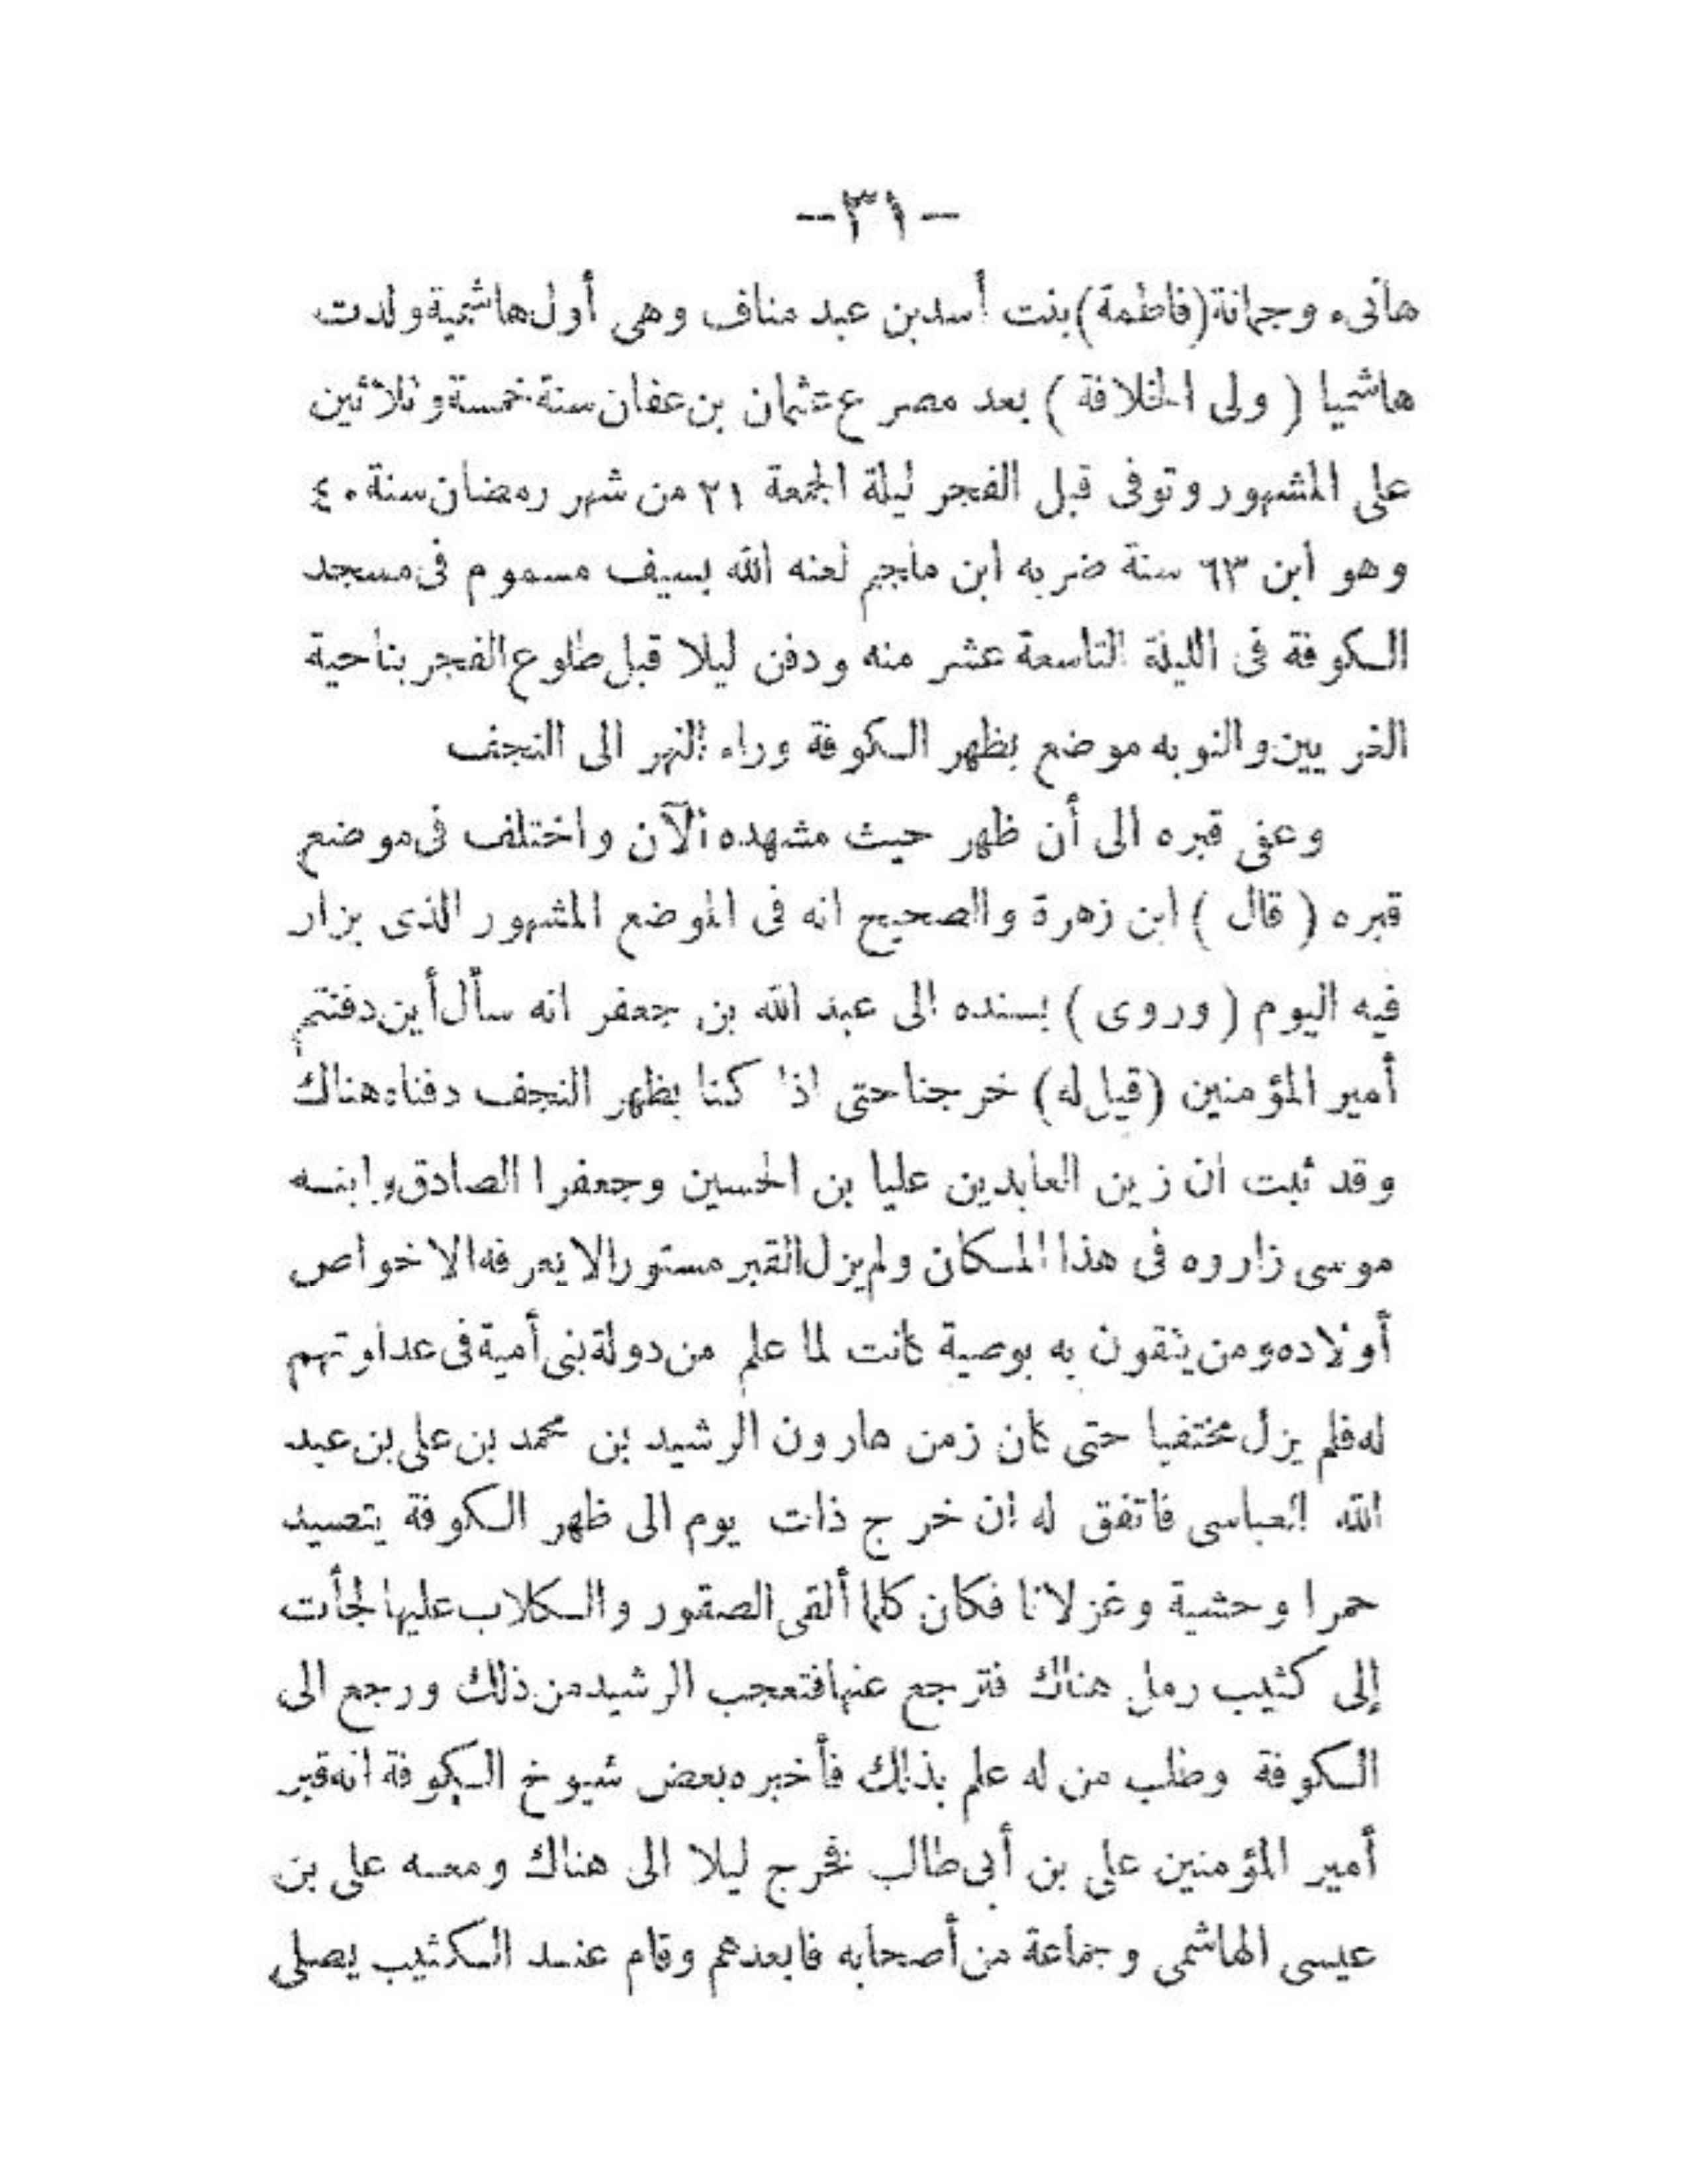 -٣١-
هانىء وجمانة (فاطمة) بنت أسد بن عبد مناف وهى أول هاشمية ولدت
هاشميا ( ولى الخلافة ) بعد مصرع عثمان بن عفان سنة خمسة وثلاثين
على المشهور وتوفى قبل الفجر ليلة الجمعة ٢١ من شهر رمضان سنة ٤٠
وهو ابن ٦٣ سنة ضربه ابن ملجم لعنه الله بسيف مسموم فى مسجد
الكوفة فى الليلة التاسعة عشر منه ودفن ليلا قبل طلوع الفجر بناحية
الغريين والثويه موضع بظهر الكوفة وراء النهر الى النجف
وعفى قبره الى أن ظهر حيث مشهده الآن واختلف فى موضع
قبره ( قال ) ابن زهرة والصحيح انه فى الموضع المشهور الذى يزار
فيه اليوم ( وروى ) بسنده الى عبد الله بن جعفر انه سأل أين دفنتم
أمير المؤمنين (قيل له) خرجنا حتى اذا كنا بظهر النجف دفناه هناك
وقد ثبت ان زين العابدين عليا بن الحسين وجعفرا الصادق وابنه
موسى زاروه فى هذا المكان ولم يزل القبر مستورا لا يعرفه الا خواص
أولاده ومن يثقون به بوصية كانت لما علم من دولة بنى أمية فى عداوتهم
له فلم يزل مختفيا حتى كان زمن هارون الرشيد بن محمد بن على بن عبد
الله العباسى فاتفق له ان خرج ذات يوم الى ظهر الكوفة يتصيد
حمرا وحشية وغزلانا فكان كلما ألقى الصقور والكلاب عليها لجأت
إلى كثيب رمل هناك فترجع عنها فتعجب الرشيد من ذلك ورجع الى
الكوفة وطلب من له علم بذلك فأخبره بعض شيوخ الكوفة انه قبر
أمير المؤمنين على بن أبى طالب فخرج ليلا الى هناك ومعه على بن
عيسى الهاشمى وجماعة من أصحابه فابعدهم وقام عند الكثيب يصلى